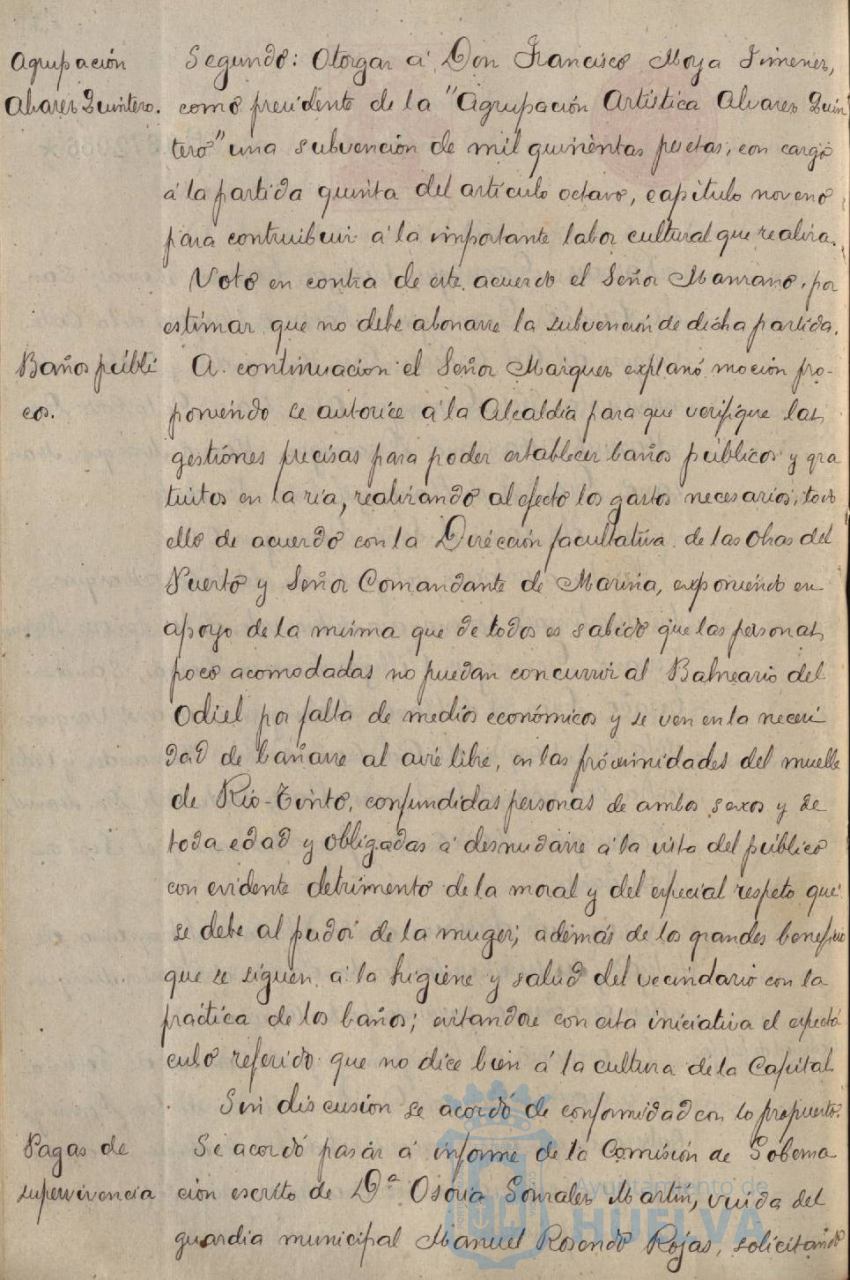 Agrupación
Alvarez Quintero.
Segundo: Otorgar á Don Francisco Moya Jimenez,
como presidente de la "Agrupación Artística Alvarez Quin
tero" una subvención de mil quinientas pesetas, con cargo
á la partida quinta del artículo octavo, capítulo noveno
para contribuir á la importante labor cultural que realiza.
Votó en contra de este acuerdo el Señor Manzano, por
estimar que no debe abonarse la subvención de dicha partida.
Baños públi
cos.
A continuación el Señor Marquez explanó moción pro-
poniendo se autorice á la Alcaldía para que verifique las
gestiones precisas para poder establecer baños públicos y gra
tuitos en la ría, realizando al efecto los gastos necesarios, todo
ello de acuerdo con la Dirección facultativa de las Obras del
Puerto y Señor Comandante de Marina, exponiendo en
apoyo de la misma que de todos es sabido que las personas
poco acomodadas no puedan concurrir al Balneario del
Odiel por falta de medios económicos y se ven en la necesi
dad de bañarse al aire libre, en las próximidades del muelle
de Río-Tinto, confundidas personas de ambos sexos y de
toda edad y obligadas á desnudarse á la vista del público
con evidente detrimento de la moral y del especial respeto que
se debe al pudor de la muger; además de los grandes beneficios
que se siguen á la higiene y salud del vecindario con la
práctica de los baños; evitandose con esta iniciativa el espectá
culo referido que no dice bien á la cultura de la Capital
Sin discusión se acordó de conformidad con lo propuesto.
Pagas de
supervivencia
Se acordó pasar á informe de la Comisión de Goberna
ción escrito de Dª Osoria Gonzalez Martín, viuda del
guardia municipal Manuel Rosendo Rojas, solicitando
Ayuntamiento de
HUELVA